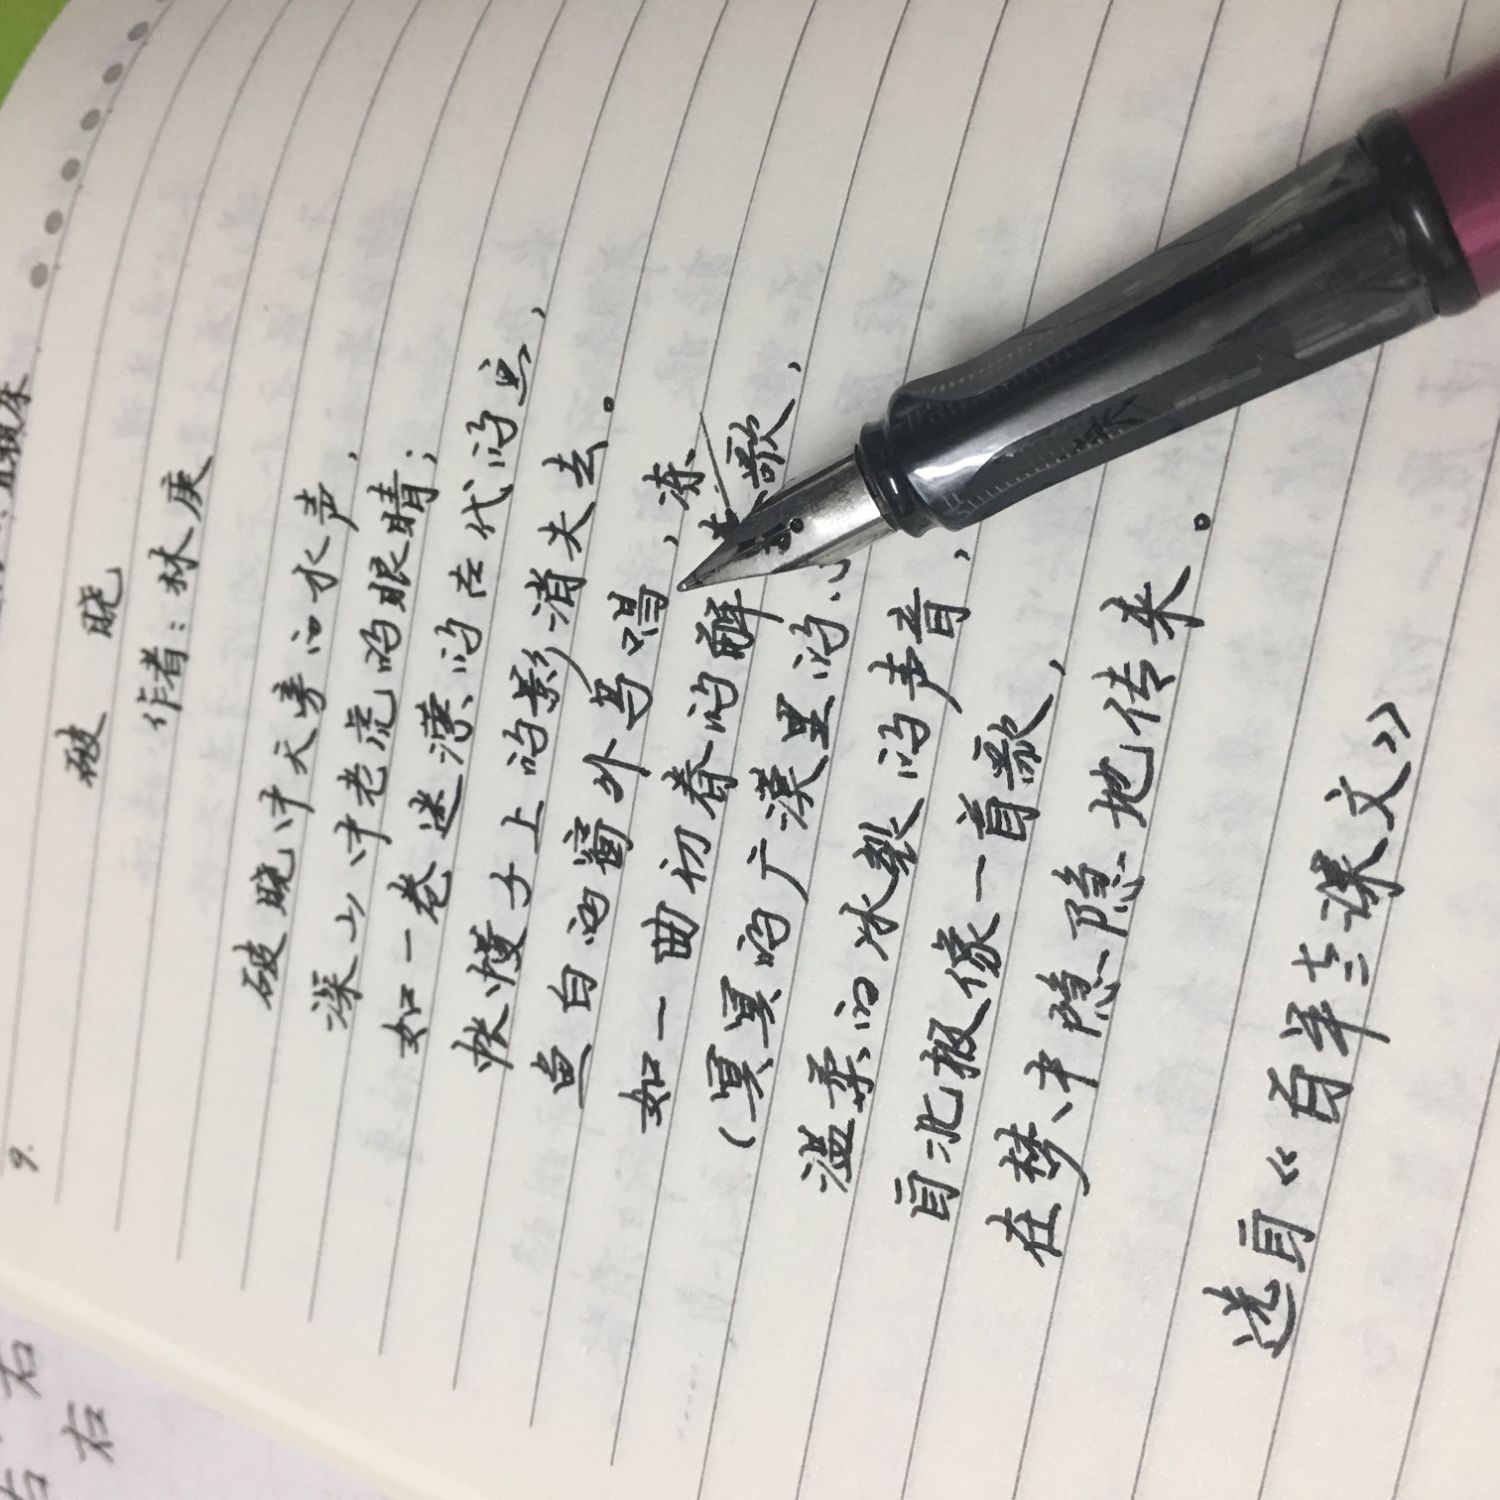 9.
破晓
作者:林庚
破晓中天旁的水声,
深山中老虎的眼睛;
如一卷迷濛的古代的画,
帐幔子上的影消失去。
鱼白的窗外鸟唱,
冻
如一曲初春的解歌,
(冥冥的广漠里的
温柔的冰裂的声音,
自北极像一首歌,
在梦中隐隐地传来。
选自《百年老课文》
右
右
右